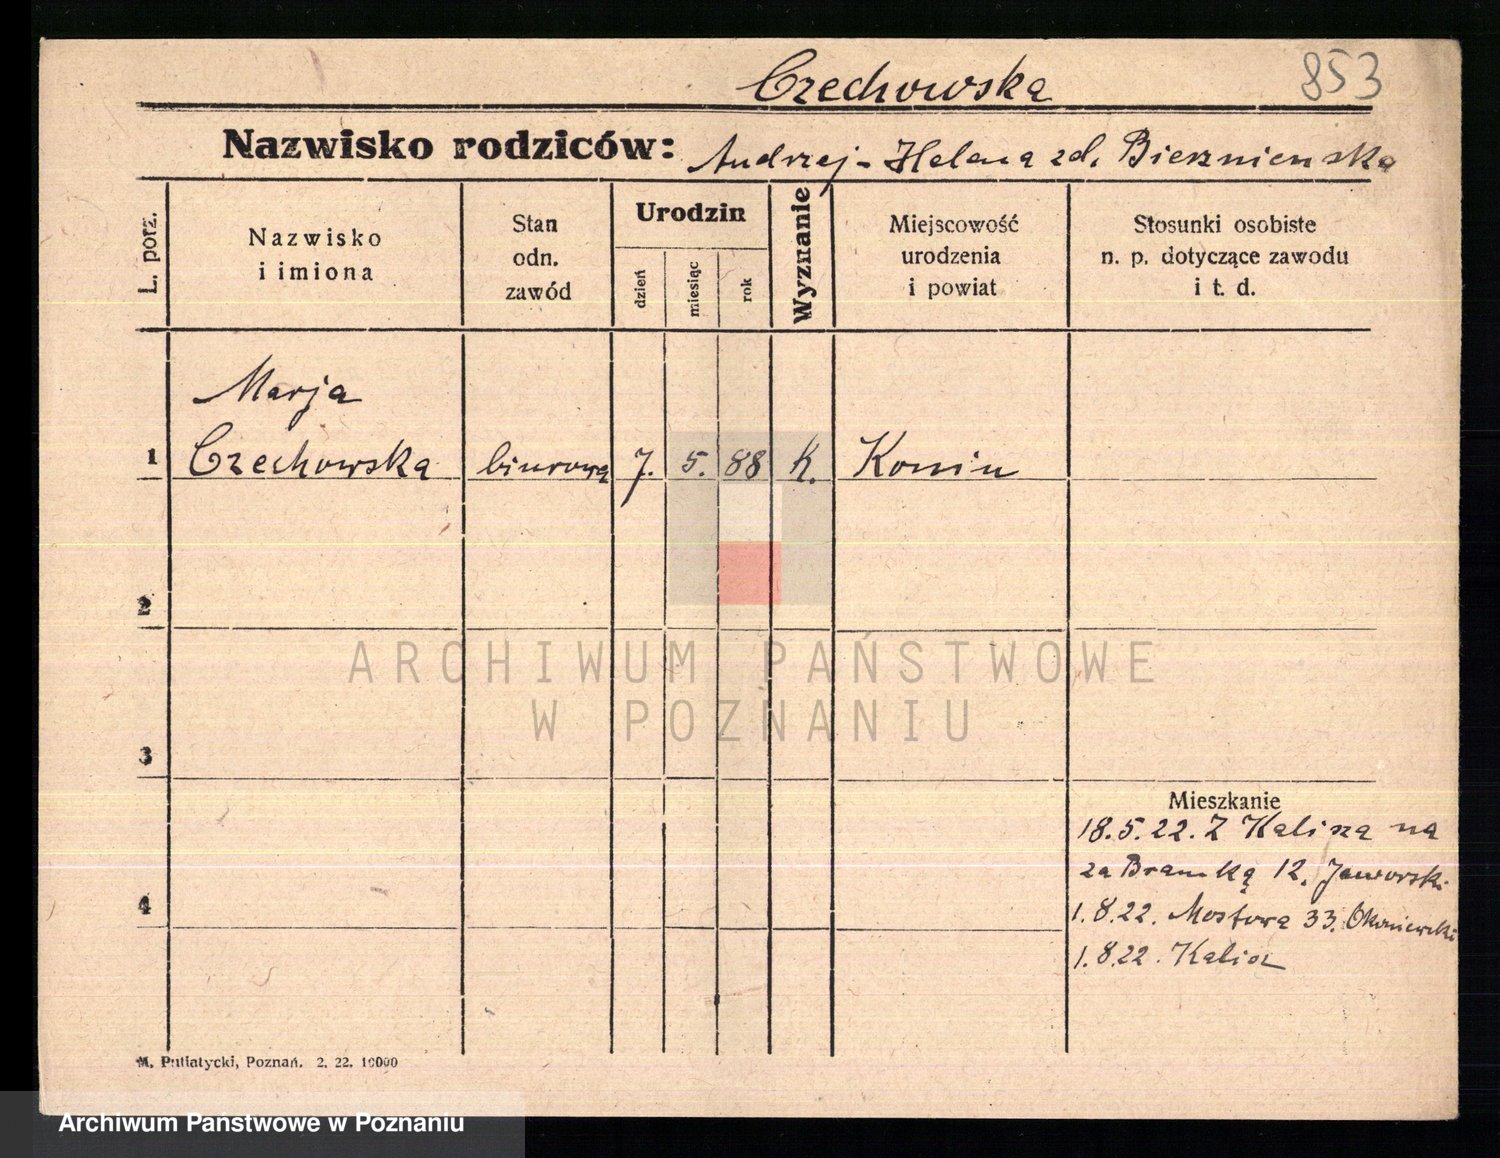 Czechowska 853
Nazwisko rodziców: Andrzej - Helena zd. Bieżnieńska
L. porz.
Nazwisko
i imiona
Stan
odn.
zawód
Urodzin
dzień
miesiąc
rok
Wyznanie
Miejscowość
urodzenia
i powiat
Stosunki osobiste
n. p. dotyczące zawodu
i t. d.
Marja
1 Czechowska biurowa 7. 5. 88 K. Konin
2
ARCHIWUM PAŃSTWOWE
W POZNANIU
3
Mieszkanie
18.5.22. Z Kalisza na
za Bramką 12. Jaworski
4
1.8.22. Mostowa 33. Okoniewski
1.8.22. Kalisz
M. Putiatycki, Poznań. 2. 22. 10000
Archiwum Państwowe w Poznaniu